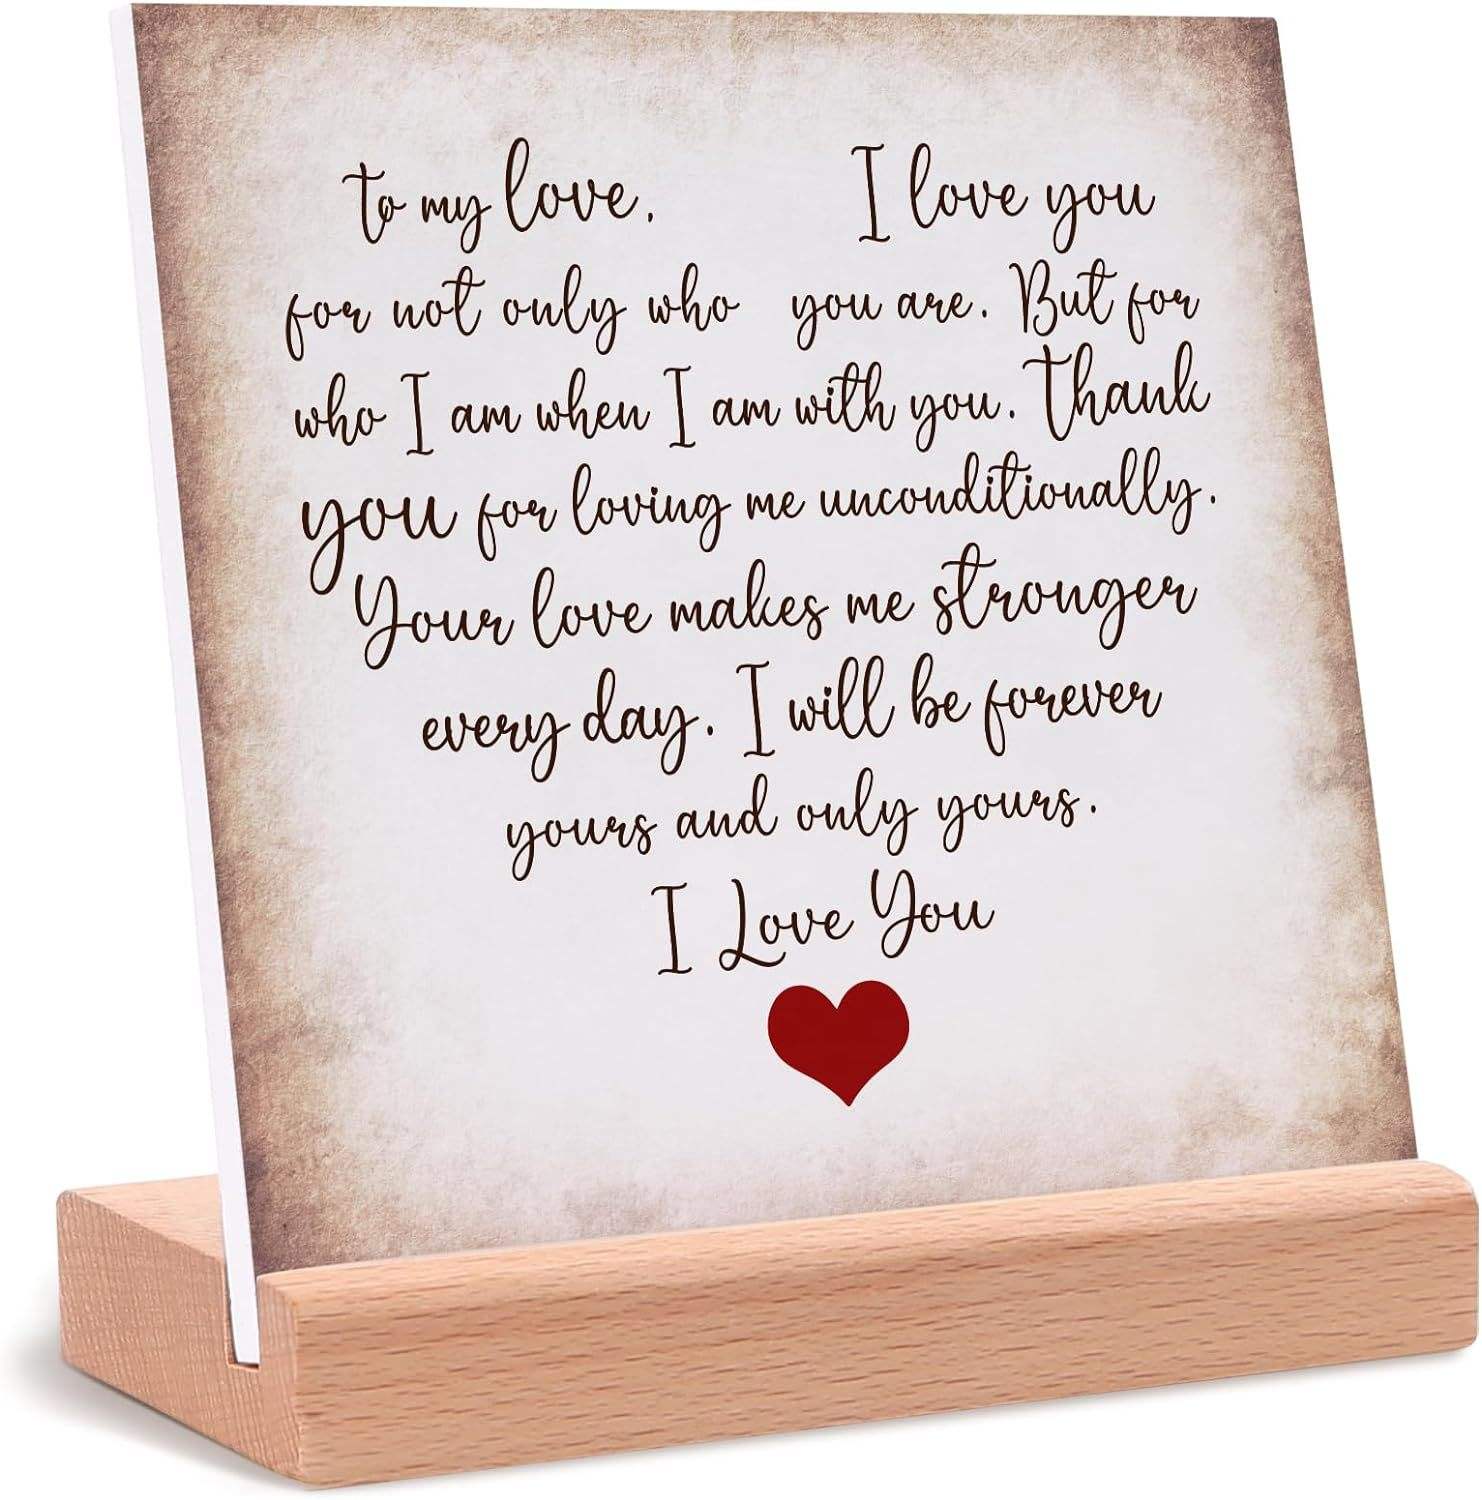 to my love. I love you
for not only who you are. But for
who I am when I am with you. Thank
you for loving me unconditionally.
Your love makes me stronger
every day. I will be forever
yours and only yours.
I Love You